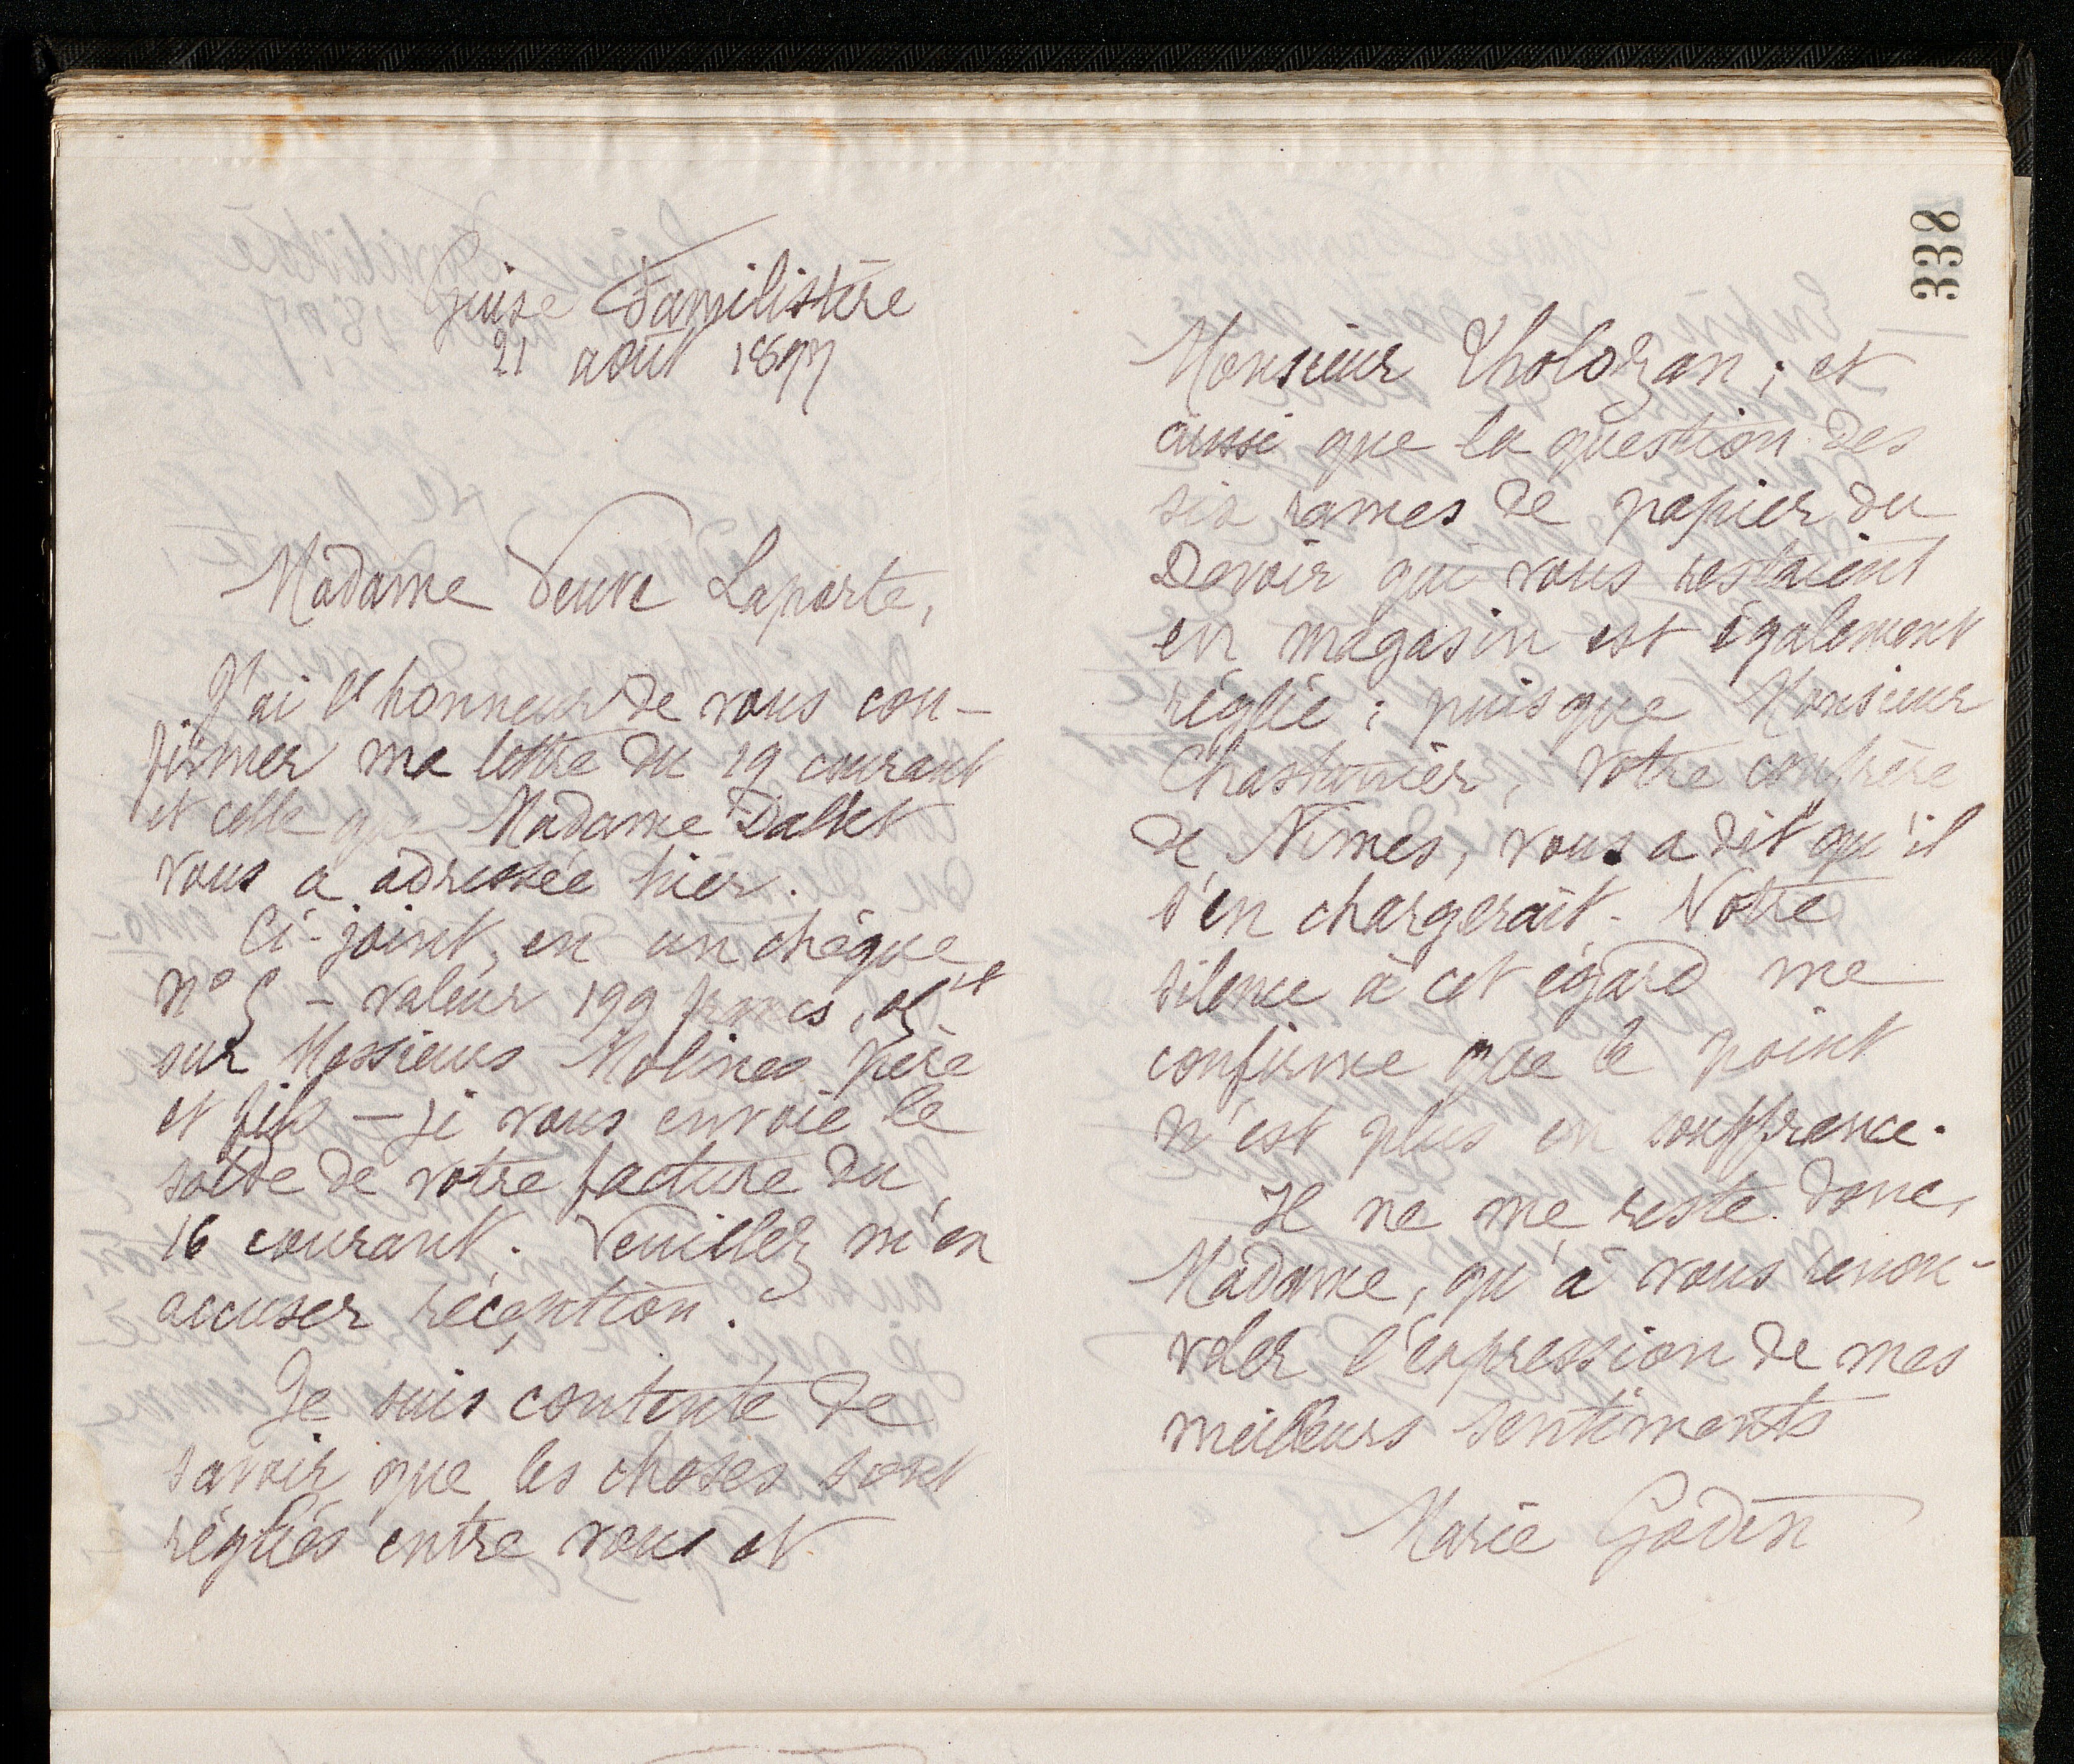 338
Guise Familistère
21 août 1897
Madame Veuve Laporte,
J'ai l'honneur de vous con-
firmer ma lettre du 19 courant
et celle que Madame Dallet
vous a adressée hier.
Ci-joint, en un chèque
n° 5 - valeur 199 francs,
sur Messieurs Molines père
et fils - je vous envoie le
solde de votre facture du
16 courant. Veuillez m'en
accuser réception.
Je suis contente de
savoir que les choses sont
réglées entre vous et
Monsieur Tholozan ; et
aussi que la question des
six rames de papier du
Devoir qui vous restaient
en magasin est également
réglée ; puisque Monsieur
Chastanier, votre confrère
de Nîmes, vous a dit qu'il
s'en chargerait. Votre
silence à cet égard me
confirme que le point
n'est plus en souffrance.
Il ne me reste donc,
Madame, qu'à vous renou-
veler l'expression de mes
meilleurs sentiments
Marie Godin